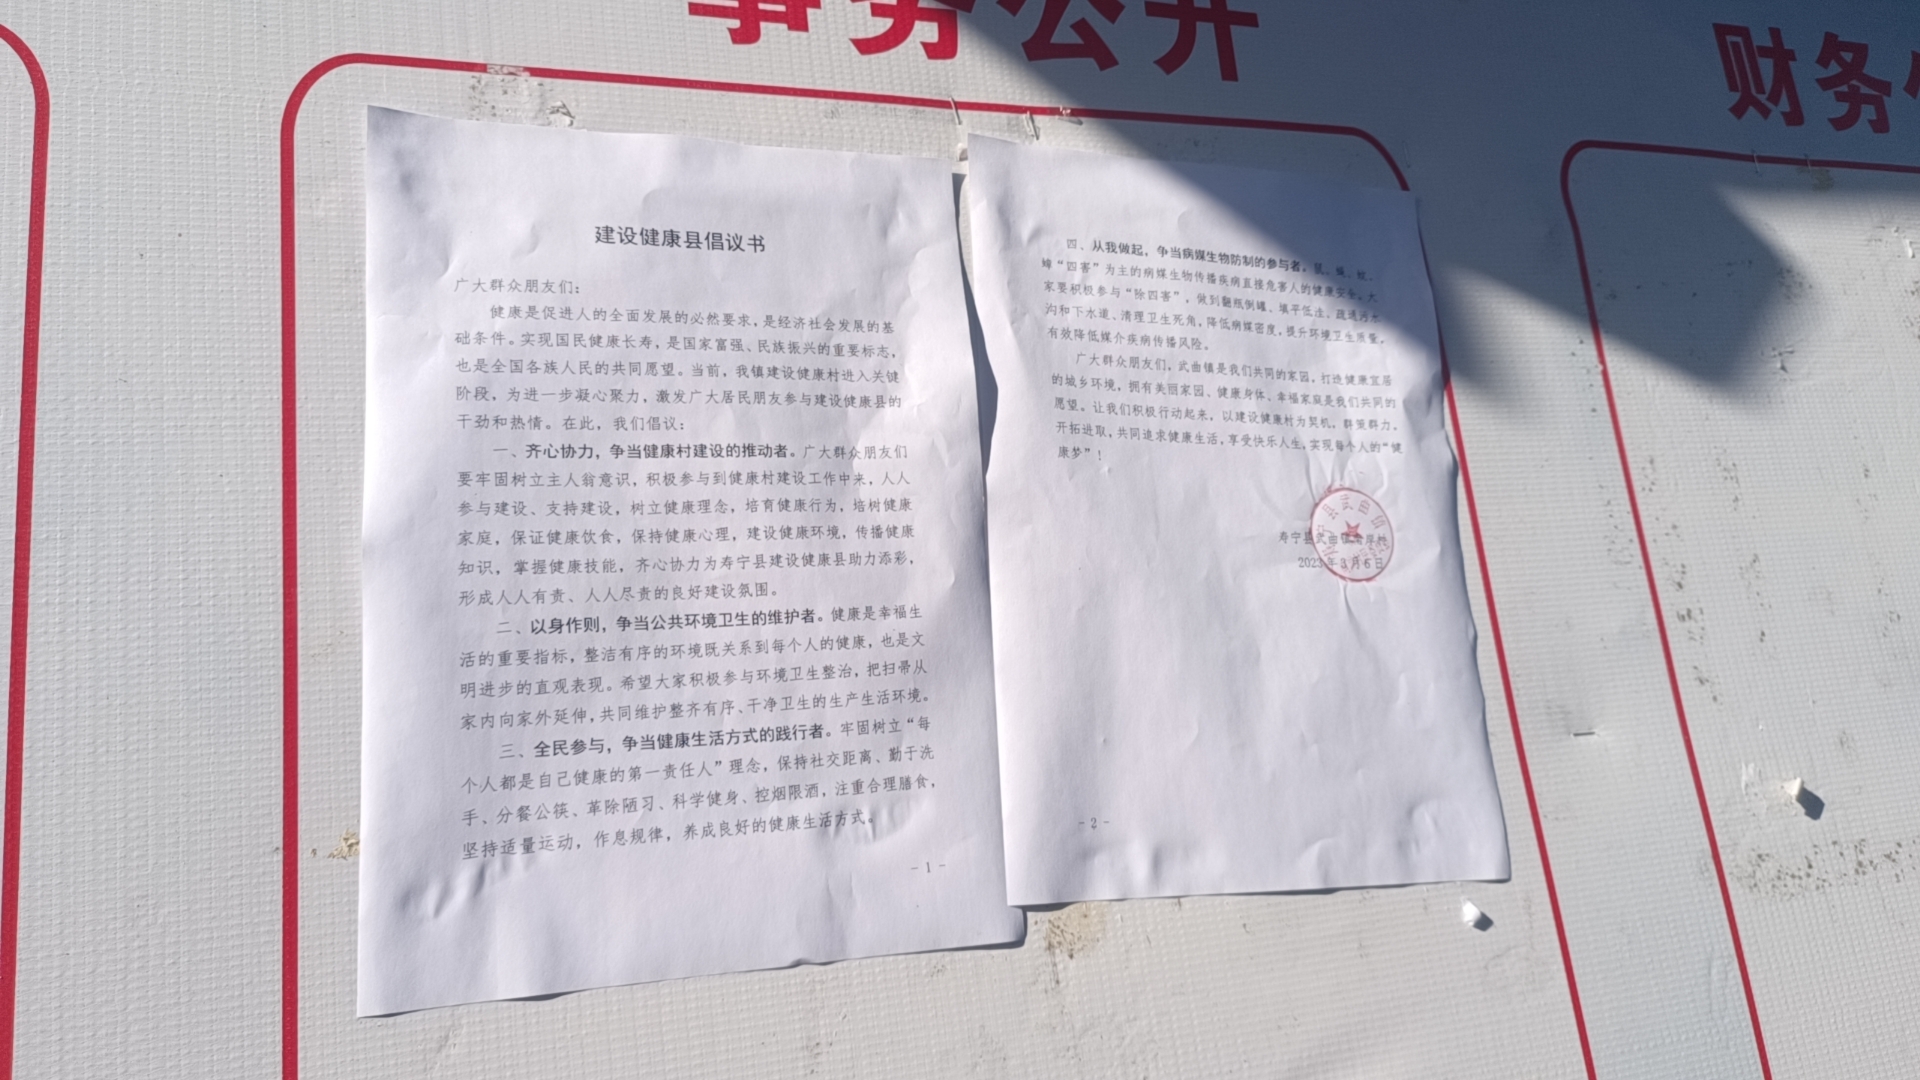 事务公开
财务
建设健康县倡议书
广大群众朋友们：
健康是促进人的全面发展的必然要求，是经济社会发展的基
础条件。实现国民健康长寿，是国家富强、民族振兴的重要标志，
也是全国各族人民的共同愿望。当前，我镇建设健康村进入关键
阶段，为进一步凝心聚力，激发广大居民朋友参与建设健康县的
干劲和热情。在此，我们倡议：
一、齐心协力，争当健康村建设的推动者。广大群众朋友们
要牢固树立主人翁意识，积极参与到健康村建设工作中来，人人
参与建设、支持建设，树立健康理念，培育健康行为，培树健康
家庭，保证健康饮食，保持健康心理，建设健康环境，传播健康
知识，掌握健康技能，齐心协力为寿宁县建设健康县助力添彩，
形成人人有责、人人尽责的良好建设氛围。
二、以身作则，争当公共环境卫生的维护者。健康是幸福生
活的重要指标，整洁有序的环境既关系到每个人的健康，也是文
明进步的直观表现。希望大家积极参与环境卫生整治，把扫帚从
家内向家外延伸，共同维护整齐有序、干净卫生的生产生活环境。
三、全民参与，争当健康生活方式的践行者。牢固树立“每
个人都是自己健康的第一责任人”理念，保持社交距离、勤于洗
手、分餐公筷、革除陋习、科学健身、控烟限酒，注重合理膳食，
坚持适量运动，作息规律，养成良好的健康生活方式。
- 1 -
四、从我做起，争当病媒生物防制的参与者。鼠、蝇、蚊、
蟑“四害”为主的病媒生物传播疾病直接危害人的健康安全。大
家要积极参与“除四害”，做到翻瓶倒罐、填平低洼、疏通污水
沟和下水道、清理卫生死角，降低病媒密度，提升环境卫生质量，
有效降低媒介疾病传播风险。
广大群众朋友们，武曲镇是我们共同的家园，打造健康宜居
的城乡环境，拥有美丽家园、健康身体、幸福家庭是我们共同的
愿望。让我们积极行动起来，以建设健康村为契机，群策群力，
开拓进取，共同追求健康生活，享受快乐人生，实现每个人的“健
康梦”！
寿宁县武曲镇
2023年3月6日
- 2 -